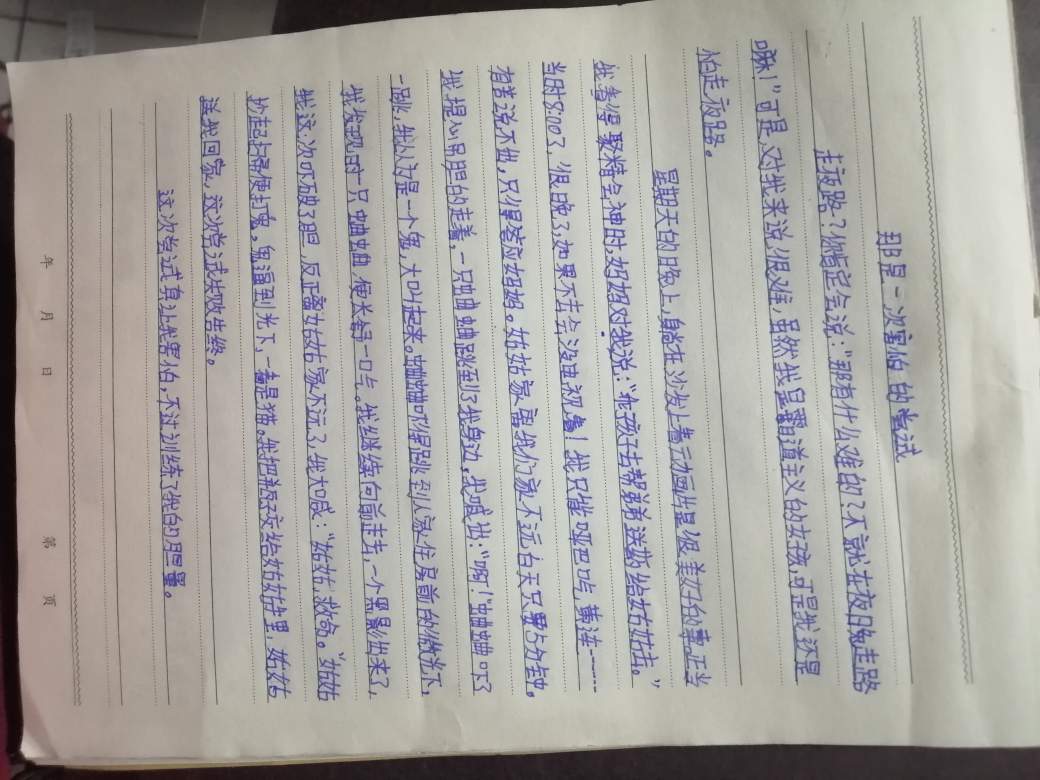 那是一次害怕的尝试
走夜路？你肯定会说：“那有什么难的？不就在夜晚走路
嘛！”可是，对我来说，很难，虽然我是霸道主义的女孩，可是我还是
怕走夜路。
星期天的晚上，躺在沙发上看动画片是很美好的事，正当
我看得聚精会神时，妈妈对我说：“乖孩子去帮弟送药给姑姑去。”
当时8:00了，很晚了，如果不去会没电视看！我只能哑巴吃黄连——
有苦说不出，只得答应妈妈。姑姑家离我们家不远白天只要5分钟。
我提心吊胆的走着，一只蛐蛐跳到了我身边，我喊出：“啊！”蛐蛐吓了
一跳，我认为是一个鬼，大叫起来。蛐蛐吓得跳到人家住房前的微光下，
我发现时一只蛐蛐，便长舒一口气。我继续向前走去，一个黑影出来了，
我这次吓破了胆，反正离姑姑家不远了，我大喊：“姑姑，救命。”姑姑
抄起扫帚便打鬼，鬼逼到光下，一看是猫。我把药交给姑姑手里，姑姑
送我回家，这次尝试失败告终。
这次尝试真让我害怕，不过训练了我的胆量。
年 月 日 第 页